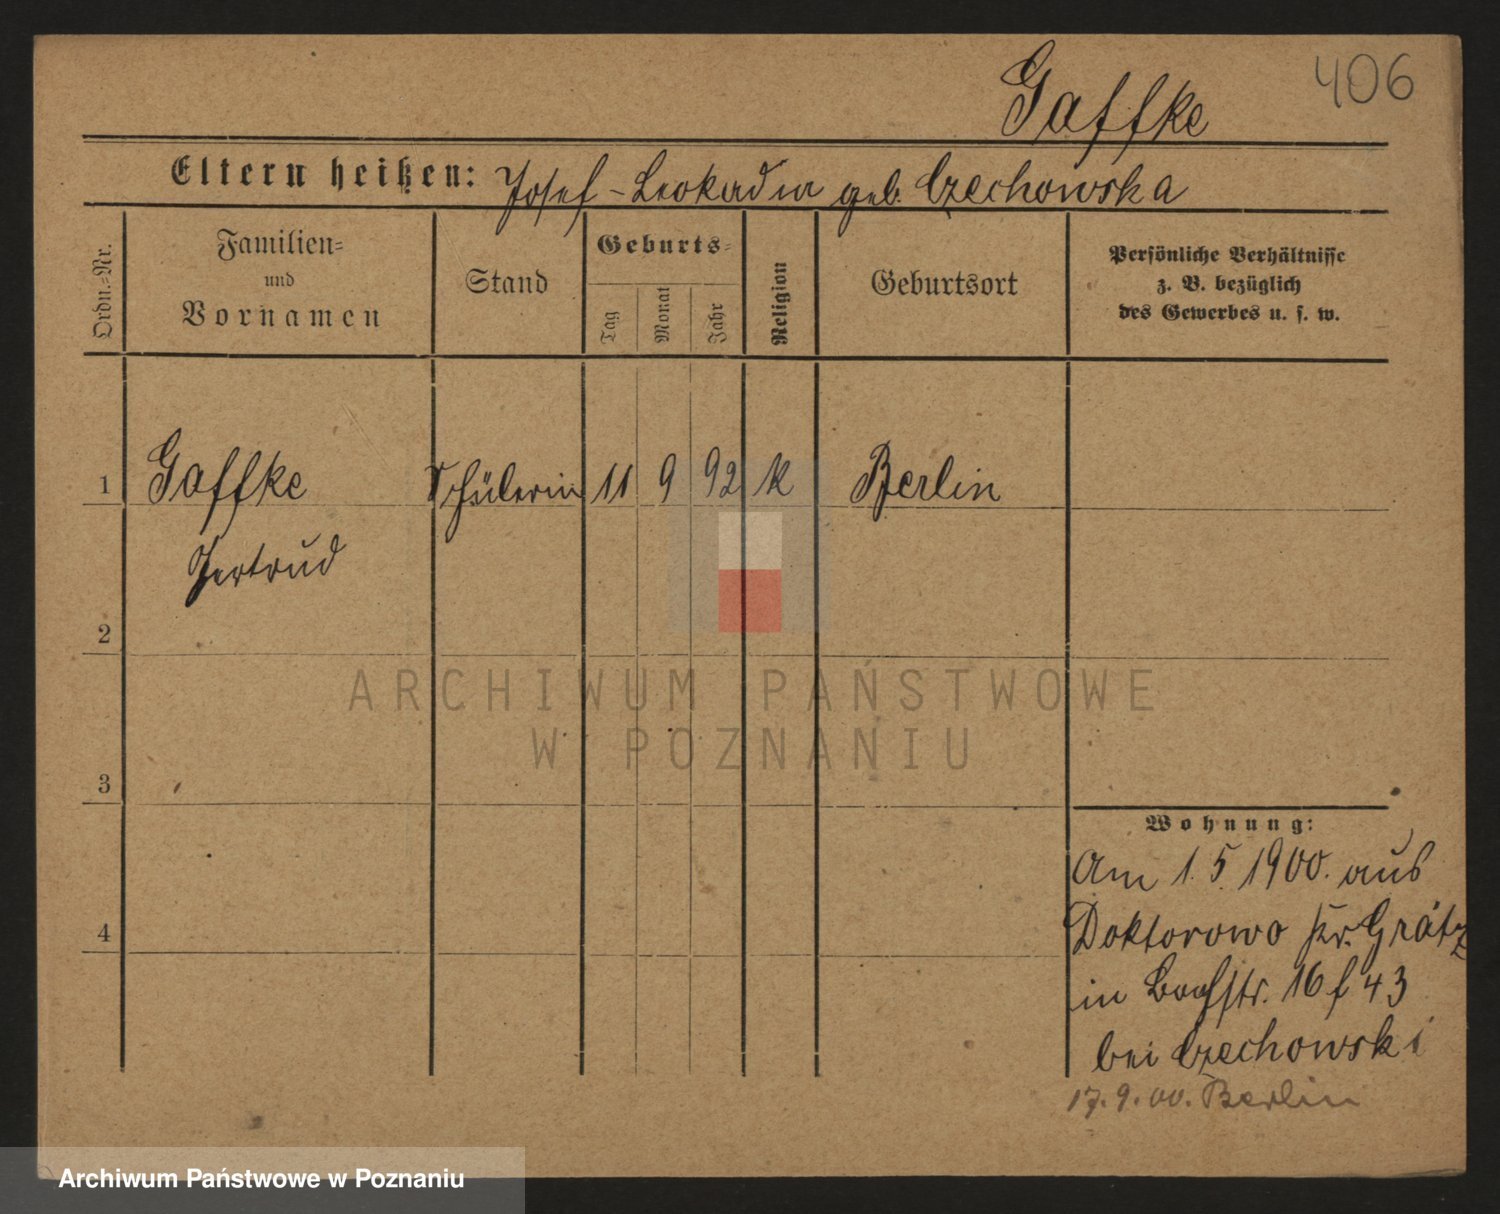 Gaffke
406
Eltern heißen: Josef - Leokadia geb. Czechowska
Ordn.-Nr.
Familien-
und
Vornamen
Stand
Geburts-
Tag
Monat
Jahr
Religion
Geburtsort
Persönliche Verhältnisse
z. B. bezüglich
des Gewerbes u. s. w.
1 Gaffke Schülerin 11 9 92 K Berlin
Gertrud
2
ARCHIWUM PAŃSTWOWE
W POZNANIU
3
Wohnung:
Am 1.5.1900. aus
4
Doktorowo Kr. Grätz
in 16 f 43
bei Czechowski
17.9.00. Berlin
Archiwum Państwowe w Poznaniu